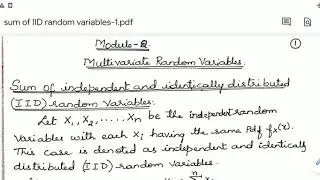 sum of IID random variables-1.pdf
Module-2
1
Multivariate Random Variables.
Sum of independent and identically distributed
(IID) random variables:
Let X1, X2, ..... Xn be the independent random
variables with each Xi having the same Pdf fx(x).
This case is denoted as independent and identically
distributed (IID) random variables.